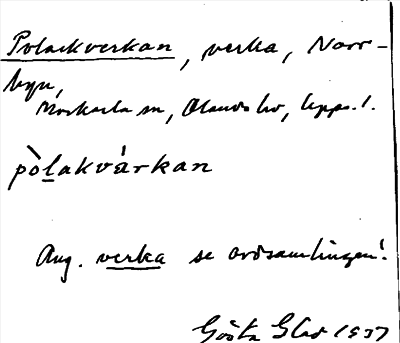 Polackverkan, verka, Norr-
byn,
Morkarla sn, Olands hd, Upps. l.
pòlakvárkan
Ang. verka se ordsamlingen!
Gösta Glad 1937